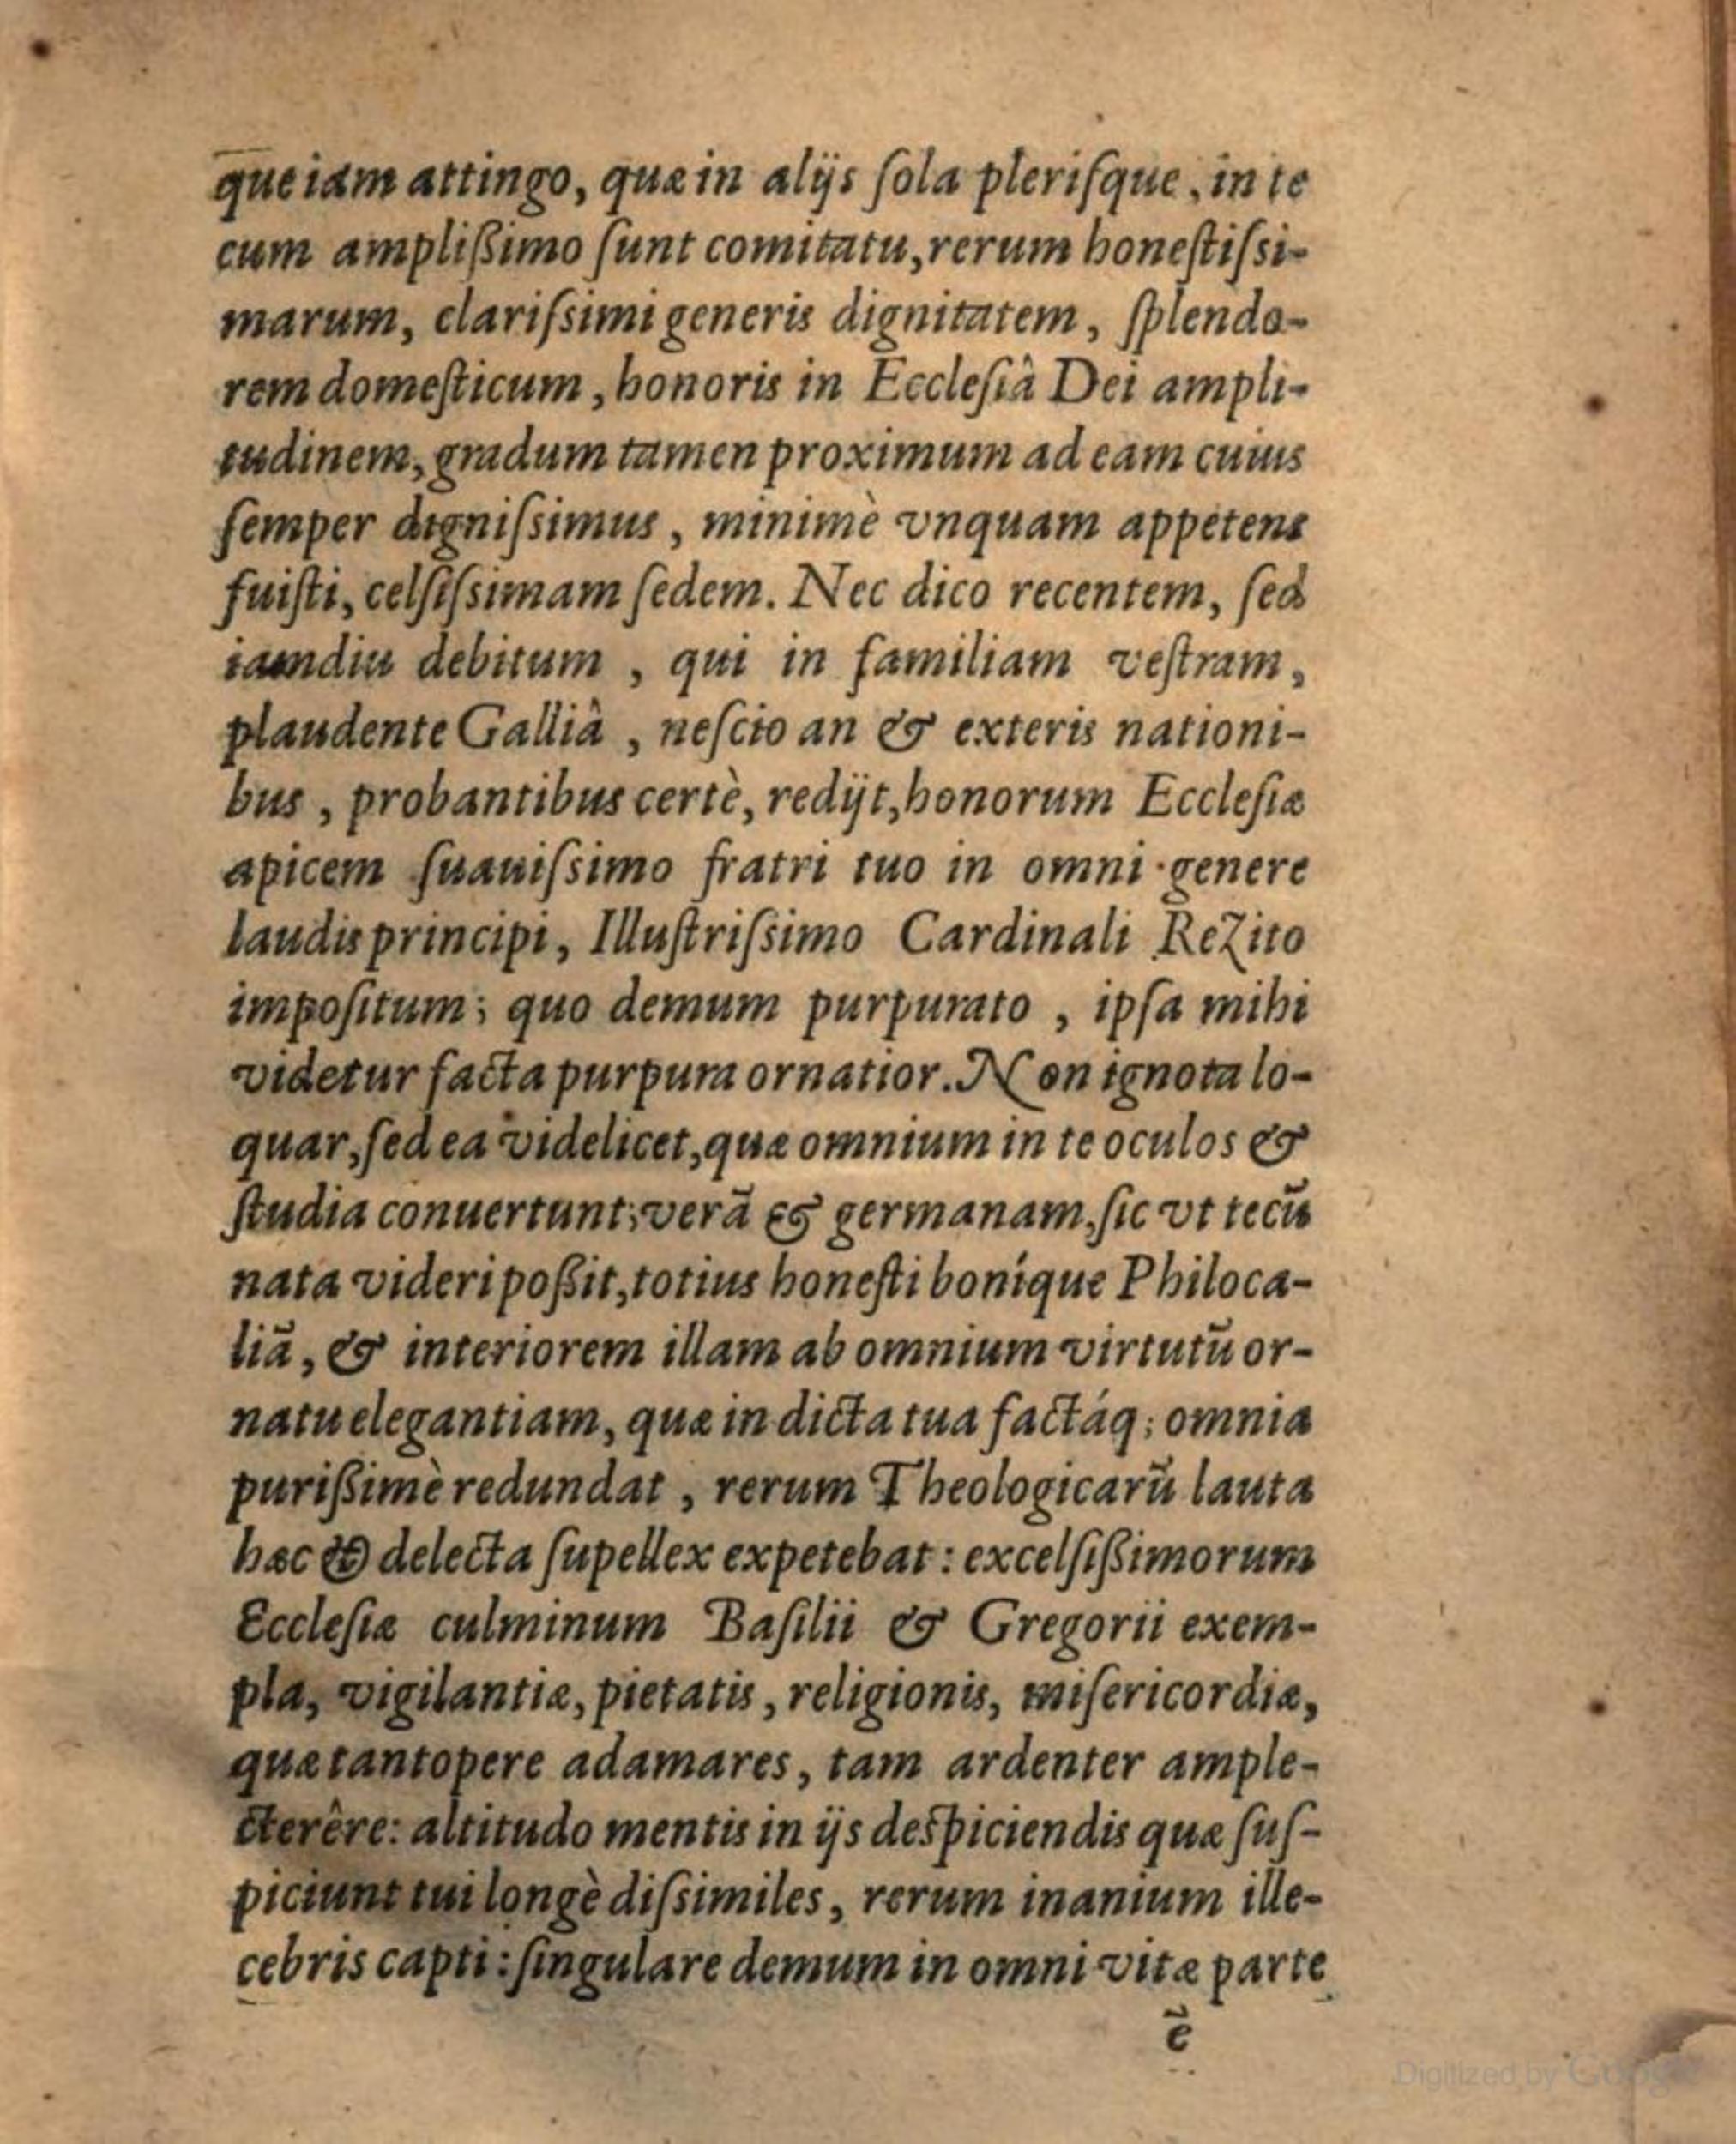 que iam attingo, quæ in alijs ſola pleriſque, in te
cum ampliſſimo ſunt comitatu, rerum honeſtiſsi-
marum, clariſsimi generis dignitatem, ſplendo-
rem domeſticum, honoris in Eccleſiâ Dei ampli-
tudinem, gradum tamen proximum ad eam cuius
ſemper digniſsimus, minimè vnquam appetens
fuiſti, celſiſsimam ſedem. Nec dico recentem, ſed
iamdiu debitum, qui in familiam veſtram,
plaudente Galliâ, neſcio an & exteris nationi-
bus, probantibus certè, redijt, honorum Eccleſiæ
apicem ſuauiſsimo fratri tuo in omni genere
laudis principi, Illuſtriſsimo Cardinali Rezito
impoſitum; quo demum purpurato, ipſa mihi
videtur facta purpura ornatior. Non ignota lo-
quar, ſed ea videlicet, quæ omnium in te oculos &
ſtudia conuertunt; verā & germanam, ſic vt tecū
nata videri poſſit, totius honeſti boníque Philoca-
liā, & interiorem illam ab omnium virtutū or-
natu elegantiam, quæ in dicta tua factáq; omnia
puriſſimè redundat, rerum Theologicarū lauta
hæc & delecta ſupellex expetebat: excelſiſſimorum
Eccleſiæ culminum Baſilii & Gregorii exem-
pla, vigilantiæ, pietatis, religionis, miſericordiæ,
quæ tantopere adamares, tam ardenter ample-
cterêre: altitudo mentis in ijs deſpiciendis quæ ſuſ-
piciunt tui longè diſsimiles, rerum inanium ille-
cebris capti: ſingulare demum in omni vitæ parte
ē
Digitized by Google